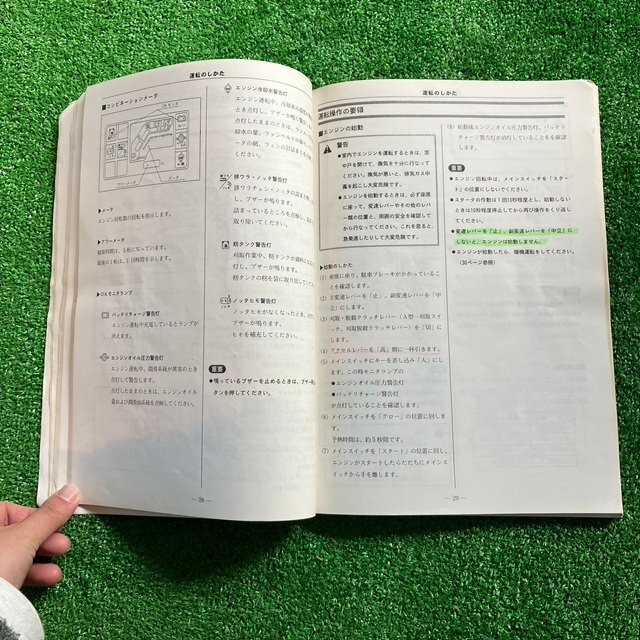 運転のしかた
■コンビネーションメータ
OKモニタ
アワーメータ
メータ
▶メータ
エンジン回転数の回転を指示します。
▶アワーメータ
積算時間は、5桁になっています。
最後の1桁は、1/10時間を示します。
▶OKモニタランプ
バッテリチャージ警告灯
エンジン充電しているとランプが
消えます。
エンジンオイル圧力警告灯
エンジン運転中、潤滑系統が異常のとき
点灯して警告します。
点灯したままのときは、エンジンオイル
量および潤滑油系統を点検してください。
エンジン冷却水警告灯
エンジン運転中、冷却水の
とき点灯し、ブザーが鳴り
点灯したままのときは、ラジ
却水の量、ファンベルトの
ットの網、フィンの目詰まり
ください。
排ワラ・ノッタ警告灯
排ワラチェン・ノッタの詰まり
し、ブザーが鳴ります。
詰まっているところを点検し、
取り除いてください。
籾タンク警告灯
刈取作業中、籾タンクが満杯になる
灯し、ブザーが鳴ります。
籾タンクの籾を袋に取り出してく
ノッタヒモ警告灯
ノッタヒモがなくなったとき、
ザーが鳴ります。
ヒモを補充してください。
重要
●鳴っているブザーを止めるときは、ブザー
タンを押してください。
— 28 —
運転のしかた
運転操作の要領
■エンジンの始動
警告
●室内でエンジンを運転するときは、窓
や戸を開けて、換気を十分に行なって
ください。換気が悪いと、排気ガス中
毒を起こし大変危険です。
●エンジンを始動するときは、必ず座席
に座って、変速レバーやその他のレバ
ー類の位置と、周囲の安全を確認して
から行なってください。これを怠ると、
急発進したりして大変危険です。
▶始動のしかた
(1) 座席に座り、駐車ブレーキがかかっているこ
とを確認します。
(2) 主変速レバーを「止」、副変速レバーを「中
立」にします。
(3) 刈取・脱穀クラッチレバー（A型…刈取スイ
ッチ、刈取脱穀クラッチレバー）を「切」に
します。
(4) アクセルレバーを「高」側に一杯引きます。
(5) メインスイッチにキーを差し込み「入」にし
ます。この時モニタランプの
●エンジンオイル圧力警告灯
●バッテリチャージ警告灯
が点灯していることを確認します。
(6) メインスイッチを「グロー」の位置に回しま
す。
予熱時間は、約5秒間です。
(7) メインスイッチを「スタート」の位置に回し、
エンジンがスタートしたらただちにメインス
イッチから手を離します。
(8) 始動後エンジンオイル圧力警告灯、バッテリ
チャージ警告灯が消灯していることを確認し
ます。
重要
●エンジン回転中は、メインスイッチを「スター
ト」の位置にしないでください。
●スタータの作動は1回10秒程度とし、始動しない
ときは10秒程度停止してから再び操作をくり返し
てください。
●変速レバーを「止」、副変速レバーを「中立」に
しないと、エンジンは始動しません。
●エンジンが始動したら、暖機運転をしてください。
（30ページ参照）
— 29 —